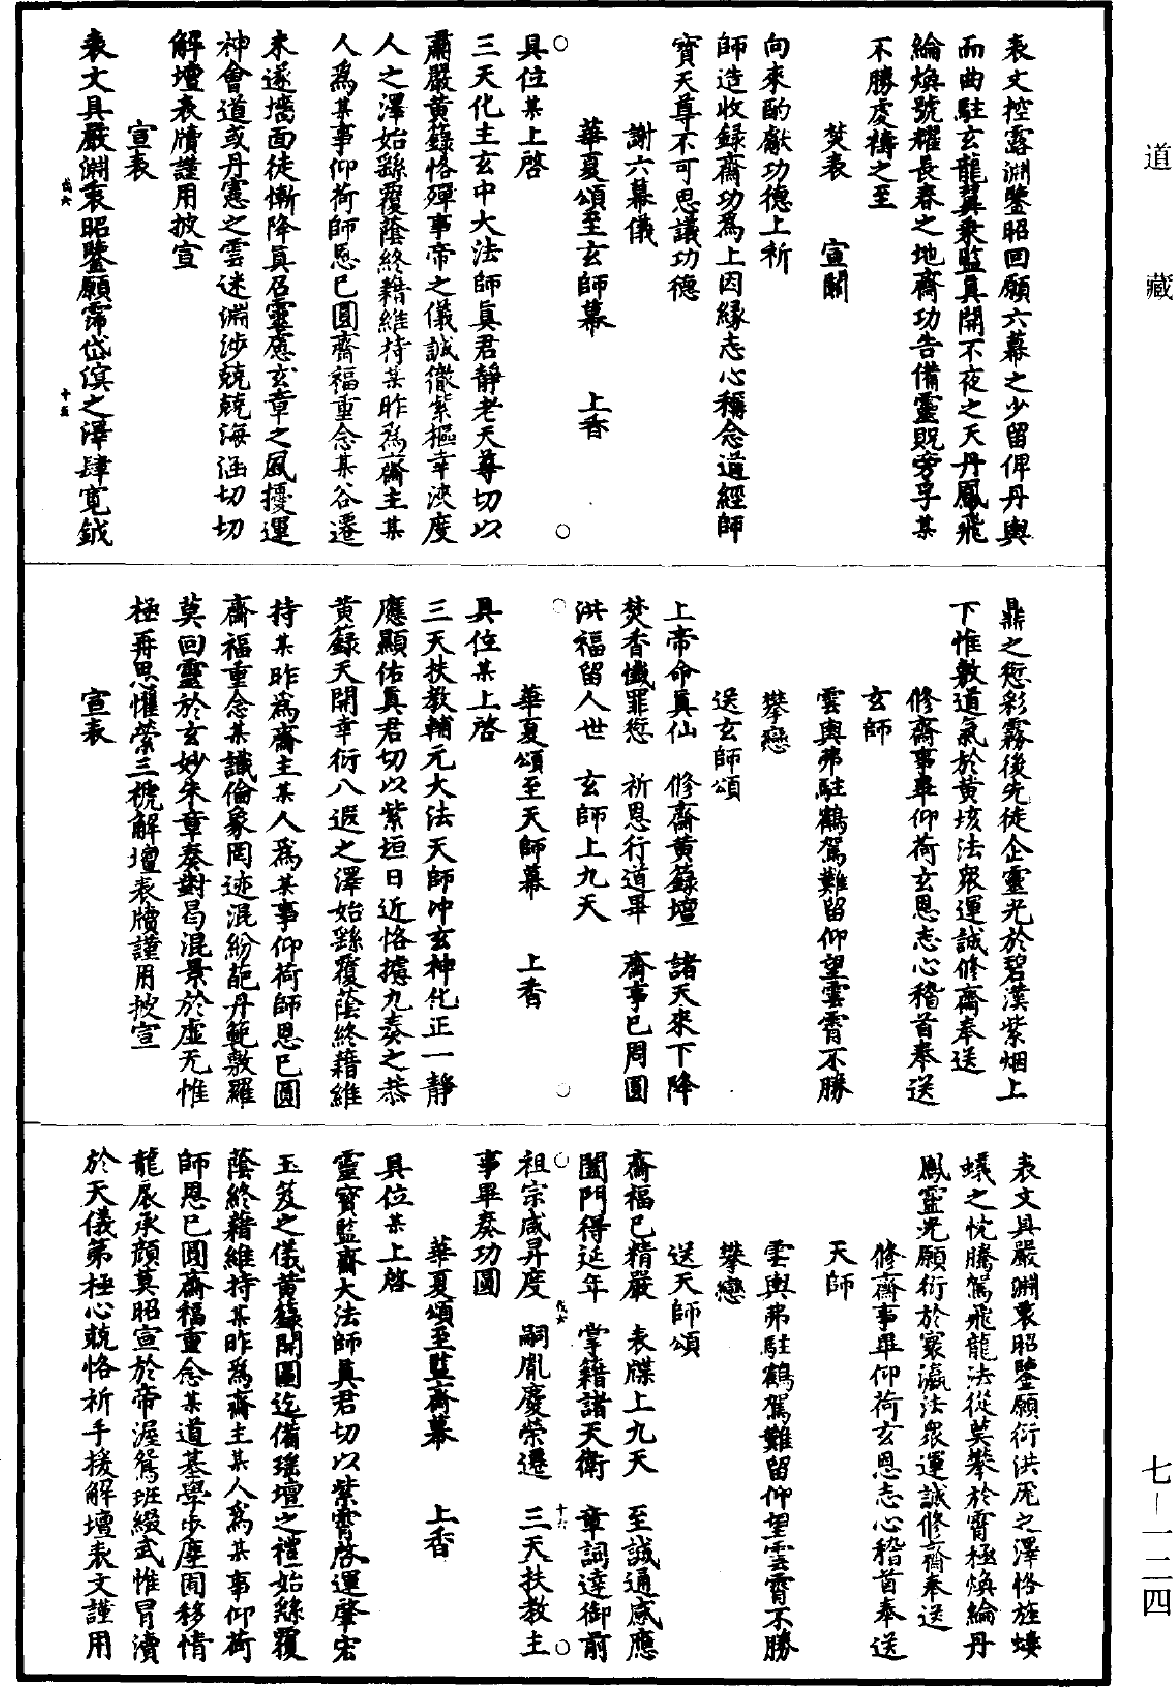 道藏
表文控露淵鑒昭回願六幕之少留俾丹輿
而曲駐玄龍翼乘監真開不夜之天丹鳳飛
綸煥號耀長春之地齋功告備靈貺旁孚某
不勝虔禱之至
焚表　宣關
向來酌獻功德上祈
師造收録齋功爲上因緣志心稱念道經師
寶天尊不可思議功德
謝六幕儀
華夏頌至玄師幕　上香
具位某上啓
三天化主玄中大法師真君靜老天尊切以
肅嚴黃籙恪殫事帝之儀誠徹紫樞幸浹度
人之澤始繇覆蔭終藉維持某昨爲齋主某
人爲某事仰荷師恩已圓齋福重念某谷遷
未遂墻面徒慚降真召靈應玄章之風擾運
神會道或丹憲之雲迷淵涉兢兢海涵切切
解壇表牘謹用披宣
宣表
表文具嚴淵衷昭鑒願霈岱溟之澤肆寬鉞
鼎之愆彩霧後先徒企靈光於碧漢紫烟上
下惟敷道氣於黃垓法衆運誠修齋奉送
修齋事畢仰荷玄恩志心稽首奉送
玄師
雲輿弗駐鶴駕難留仰望雲霄不勝
攀戀
送玄師頌
上帝命真仙　修齋黃籙壇　諸天來下降
焚香懺罪愆　祈恩行道畢　齋事已周圓
洪福留人世　玄師上九天
華夏頌至天師幕　上香
具位某上啓
三天扶教輔元大法天師冲玄神化正一靜
應顯佑真君切以紫垣日近恪攄九奏之恭
黃籙天開幸衍八遐之澤始繇覆蔭終藉維
持某昨爲齋主某人爲某事仰荷師恩已圓
齋福重念某識倫象罔迹混紛葩丹範敷羅
莫回靈於玄妙朱章奏對曷混景於虛无惟
極再思懼縈三褫解壇表牘謹用披宣
宣表
表文具嚴淵衷昭鑒願衍洪厖之澤恪旌螻
蟻之忱騰駕飛龍法從莫攀於霄極煥綸丹
鳳靈光願衍於寰瀛法衆運誠修齋奉送
修齋事畢仰荷玄恩志心稽首奉送
天師
雲輿弗駐鶴駕難留仰望雲霄不勝
攀戀
送天師頌
齋福已精嚴　表牒上九天　至誠通感應
闔門得延年　掌籍諸天衛　章詞達御前
祖宗咸昇度　嗣胤慶榮遷　三天扶教主
事畢奏功圓
華夏頌至監齋幕　上香
具位某上啓
靈寶監齋大法師真君切以紫霄啓運肇宏
玉笈之儀黃籙開圖迄備瑤壇之禮始繇覆
蔭終藉維持某昨爲齋主某人爲某事仰荷
師恩已圓齋福重念某道基學步塵囿移情
龍扆承顔莫昭宣於帝渥鴛班綴武惟冒瀆
於天儀第極心兢恪祈手援解壇表文謹用
七—一二四